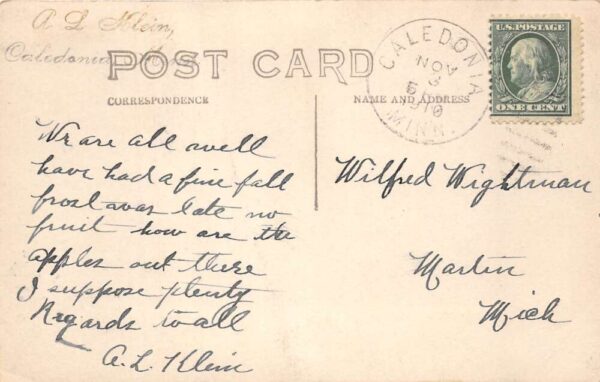 A L Klein,
Caledonia Minn
POST CARD
CORRESPONDENCE
NAME AND ADDRESS
CALEDONIA
NOV
3
1910
MINN.
U.S. POSTAGE
ONE CENT
We are all well
have had a fine fall
frost was late no
fruit how are the
apples out there
I suppose plenty
Regards to all
A. L. Klein
Wilfred Wightman
Martin
Mich